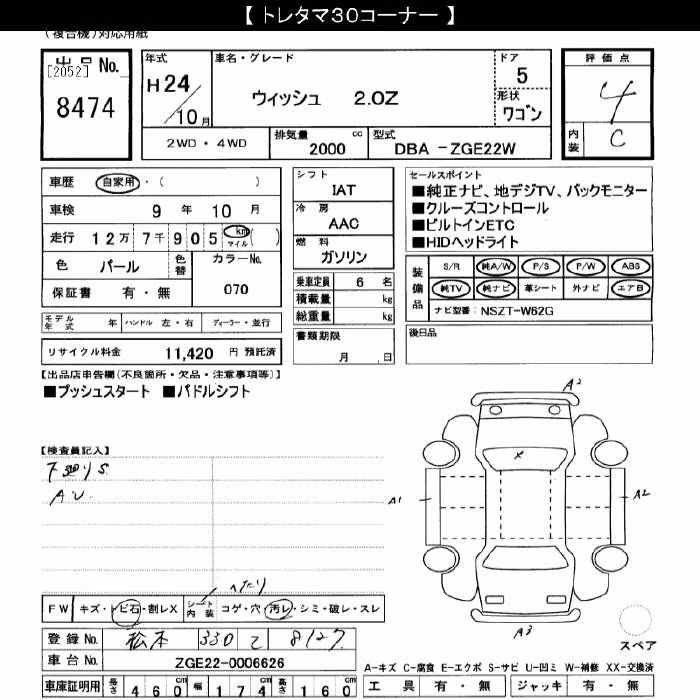 【 トレタマ30コーナー 】
(複合機)対応用紙
出品No. [2052] 8474
年式 H24/10月
車名・グレード ウィッシュ 2.0Z
ドア 5
形状 ワゴン
評価点 4
内装 C
2WD・4WD
排気量 2000 cc
型式 DBA -ZGE22W
車歴 自家用・( )
車検 9年 10月
走行 12万 7千 905 km マイル ( )
色 パール 色替 カラーNo. 070
保証書 有・無
モデル年式 年 ハンドル 左・右 ディーラー・並行
リサイクル料金 11,420 円 預託済
シフト IAT
冷房 AAC
燃料 ガソリン
乗車定員 6 名
積載量 kg
総重量 kg
書類期限 月 日
セールスポイント
■純正ナビ、地デジTV、バックモニター
■クルーズコントロール
■ビルトインETC
■HIDヘッドライト
装備品 S/R 純A/W P/S P/W ABS
純TV 純ナビ 革シート 外ナビ エアB
ナビ型番: NSZT-W62G
後日品
【出品店申告欄(不良箇所・欠品・注意事項等)】
■プッシュスタート ■パドルシフト
【検査員記入】
下廻りS
AU.
A2
X
A1
A2
A3
スペア
へたり
FW キズ・トビ石・割レX シート内装 コゲ・穴・汚レ・シミ・破レ・スレ
登録No. 松本 330 て 8127
車台No. ZGE22-0006626
車庫証明用 長さ 460 幅 174 高さ 160
A-キズ C-腐食 E-エクボ S-サビ U-凹ミ W-補修 XX-交換済
工具 有・無 ジャッキ 有・無